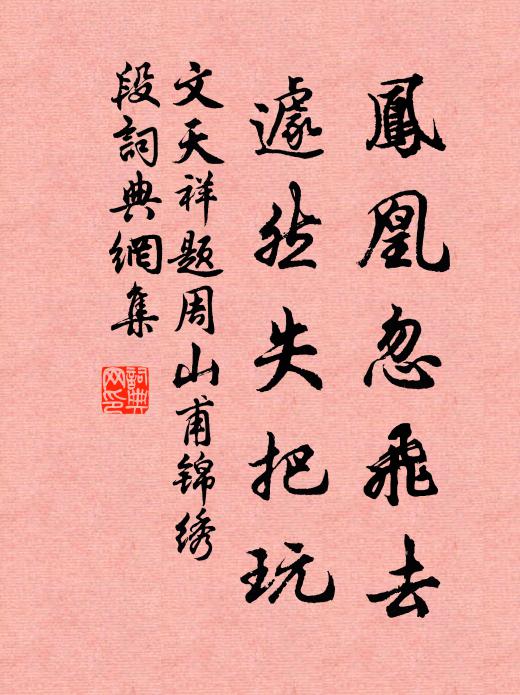 鳳凰忽飛去
遽然失把玩
文天祥题周山甫锦绣
段詞典網集
詞典
网印